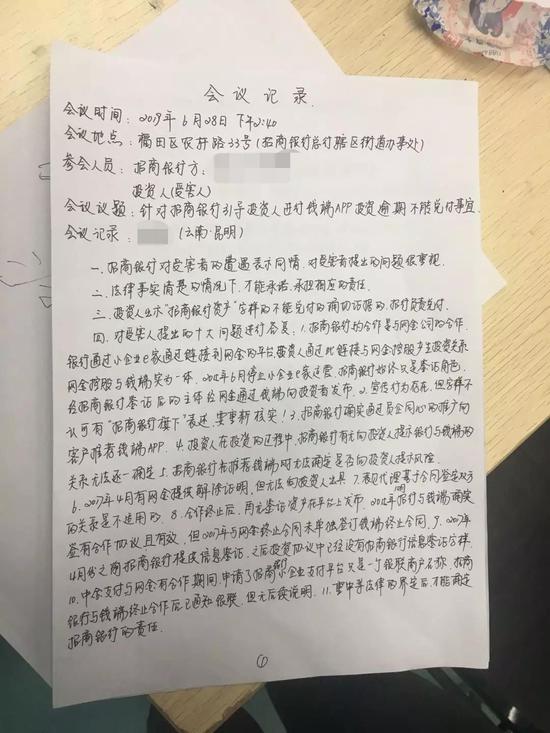 会议记录.
会议时间:2019年6月28日 下午2:40
会议地点:福田区农轩路33号(招商银行总行辖区街道办事处)
参会人员:招商银行方:
投资人(受害人)
会议议题:针对招商银行引导投资人进行钱端APP投资逾期不能兑付事宜.
会议记录: (云南·昆明)
一、招商银行对受害者的遭遇表示同情,对受害者提出的问题很重视.
二、法律事实清楚的情况下,才能承诺,承担相应的责任.
三、投资人出示"招商银行资产"字样的不能兑付的确切证据的,招行负责兑付.
四、对受害人提出的十大问题进行答复:1.招商银行的合作是与网金公司的合作.
银行通过小企业e家通过链接到网金的平台,投资人通过此链接与网金控股产生投资关系
网金控股与钱端实为一体.2016年6月停止小企业e家运营.招商银行始终只是鉴证角色.
经招商银行鉴证后的主体给网金通过钱端向投资者发布.2.宣传行为存在,但字样不
认可有"招商银行旗下"表述,要重新核实!3.招商银行确实通过员会同心的推广向
客户推荐钱端APP. 4.投资人在投资的过程中,招商银行有无向投资人提示银行与钱端的
关系无法逐一确定 5.招商银行在推荐钱端时无法确定是否向投资人提示风险.
6.2017年4月有网金提供解除证明,但无法向投资人出具 7.表见代理基于合同签定双方
的关系是不适用的. 8.合作终止后,再无鉴证资产在平台上发布.2016年招行与钱端确实
签有合作协议且有效,但2017年与网金终止合同未单独签订钱端终止合同. 9.2017年
4月份之前招商银行提供信息鉴证,之后投资协议中已经没有招商银行信息鉴证字样.
10.中金支付与网金有合作期间,申请了招商银行小企业支付平台只是一个银联商户名称,招商
银行与钱端终止合作后已通知银联,但无后续说明. 11.要申请法律的界定后,才能确定
招商银行的责任.
①